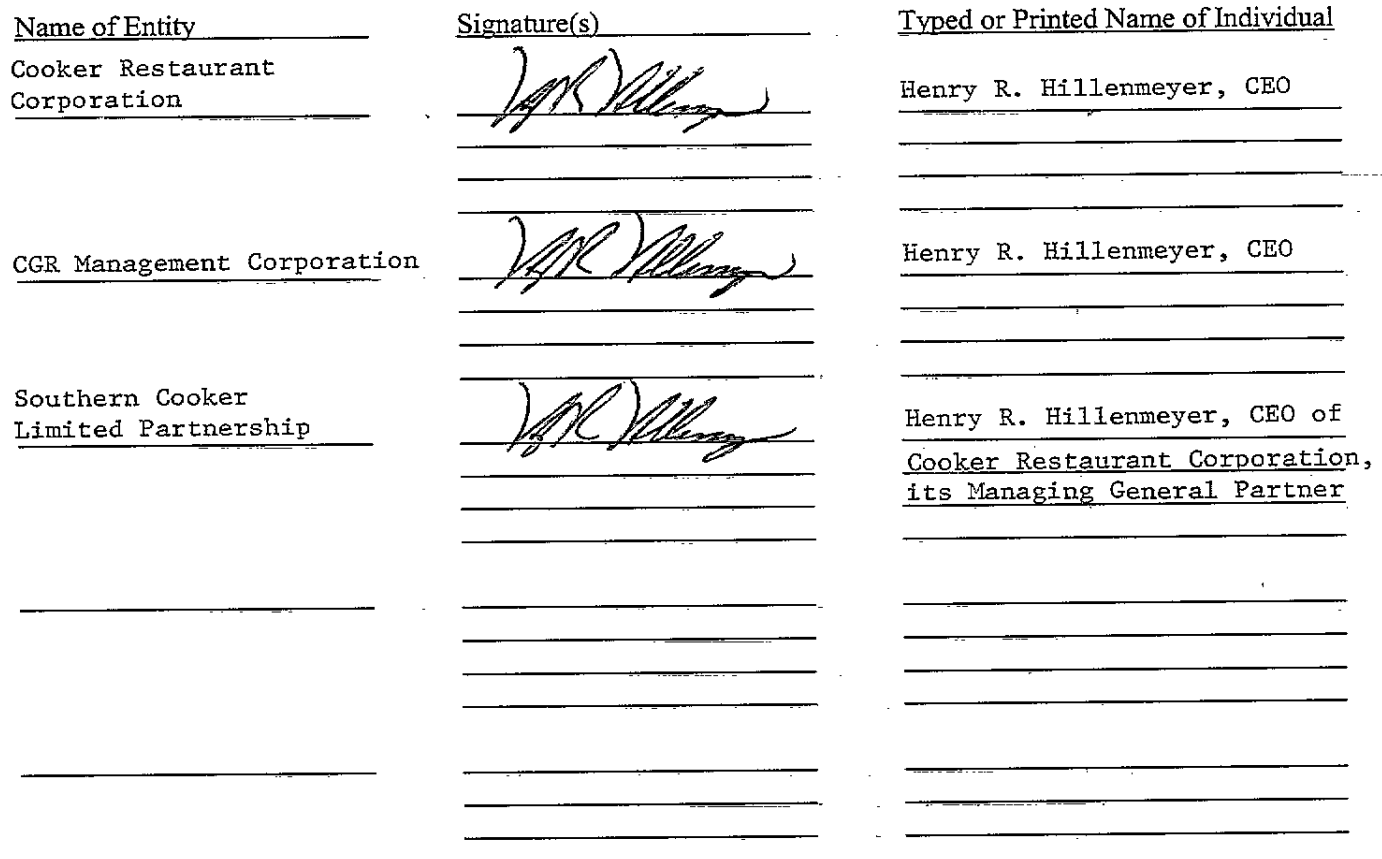 Name of Entity Signature(s) Typed or Printed Name of Individual
Cooker Restaurant
Corporation
Henry R. Hillenmeyer, CEO
CGR Management Corporation
Henry R. Hillenmeyer, CEO
Southern Cooker
Limited Partnership
Henry R. Hillenmeyer, CEO of
Cooker Restaurant Corporation,
its Managing General Partner